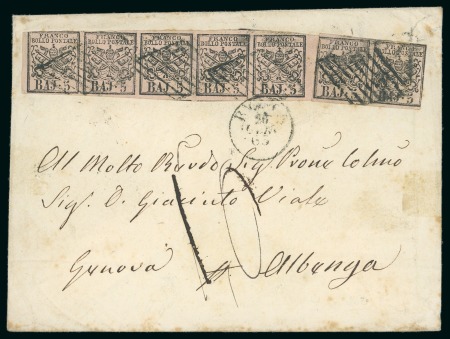 FRANCO FRANCO FRANCO FRANCO FRANCO FRANCO
BOLLO POSTALE BOLLO POSTALE BOLLO POSTALE BOLLO POSTALE BOLLO POSTALE BOLLO POSTALE
BAJ. 5 BAJ. 5 BAJ. 5 BAJ. 5 BAJ. 5 BAJ. 5 BAJ. 5
Al Molto Revdo Sig. Prone Colmo
Sig. D. Giacinto Viale
10
Genova Albenga